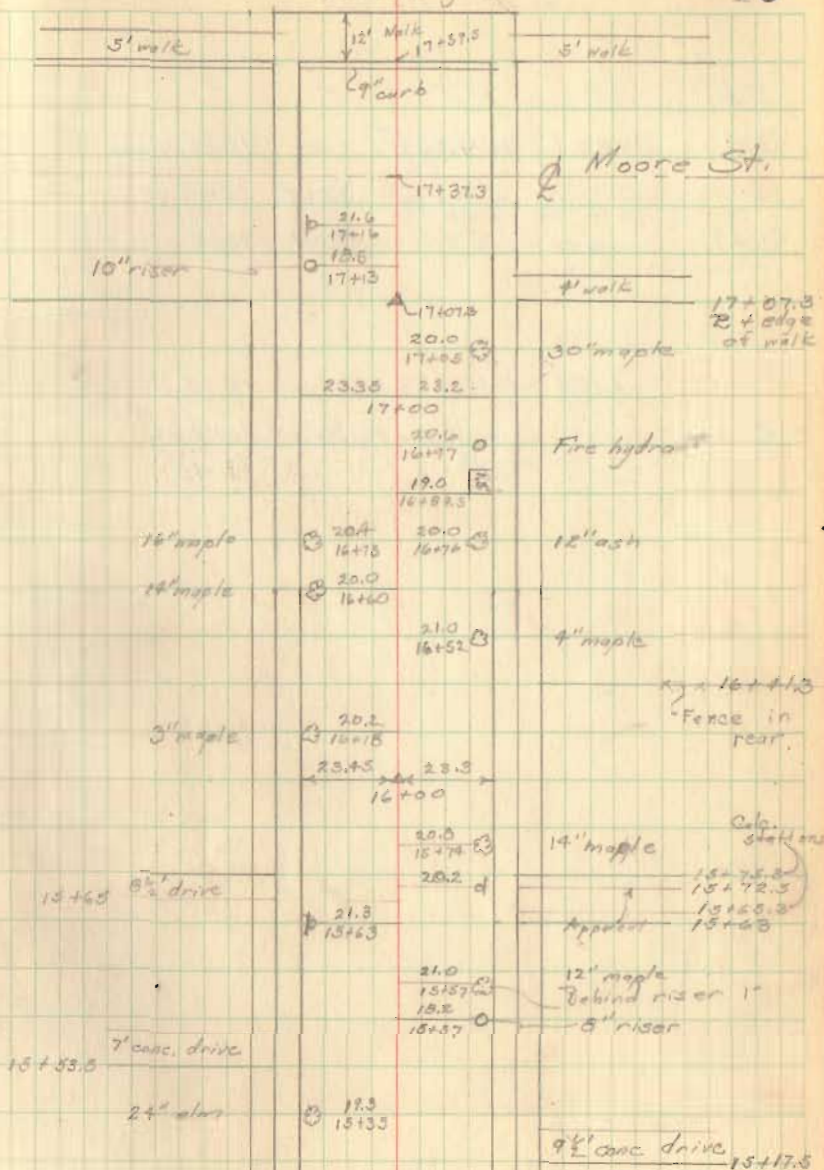 12' Walk
17+59.5
5' walk
5' walk
9" curb
℄ Moore St.
17+37.3
21.6
17+16
10" riser
18.5
17+13
4' walk
17+07.3
17+07.3
℄ + edge
of walk
20.0
17+05
30" maple
23.35 23.2
17+00
20.6
16+97
Fire hydra
19.0
16+89.5
16" maple
20.4
16+78
20.0
16+76
12" ash
14" maple
20.0
16+60
21.0
16+52
4" maple
16+41.3
Fence in
rear.
3" maple
20.2
16+18
23.45 23.3
16+00
Calc.
stations
20.8
15+79
14" maple
15+75.3
20.2
15+72.5
15+65
8½' drive
15+65.3
21.3
15+63
Apparent
15+63
21.0
15+57
12" maple
Behind riser 1'
18.2
15+57
8" riser
7' conc. drive
15+53.5
24" elm
19.3
15+35
9½' conc drive
15+17.5